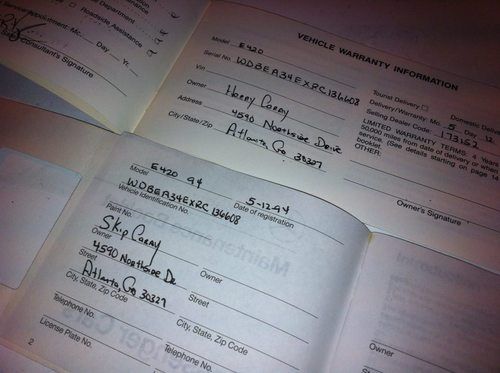 Department
Roadside Assistance
Service Appointment: Mc. Day Yr.
Consultant's Signature
VEHICLE WARRANTY INFORMATION
Model E420
Serial No. WDBEA34EXRC136608
Vin
Owner Harry Caray
Address 4590 Northside Drive
City/State/Zip Atlanta, Ga. 30327
Tourist Delivery
Delivery/Warranty: Mo. 5 Day 12
Selling Dealer Code: 173152
LIMITED WARRANTY TERMS: 4 Years
50,000 miles from date of delivery or when
service. (See details starting on page 14
booklet.
OTHER:
Owner's Signature
E420 94
Model
WDBEA34EXRC136608
Vehicle identification No.
5-12-94
Date of registration
Paint No.
Skip Caray
Owner
Owner
4590 Northside Dr.
Street
Street
Atlanta, Ga 30327
City, State, Zip Code
City, State, Zip Code
Telephone No.
Telephone No.
License Plate No.
Owner
Street
City, State
2